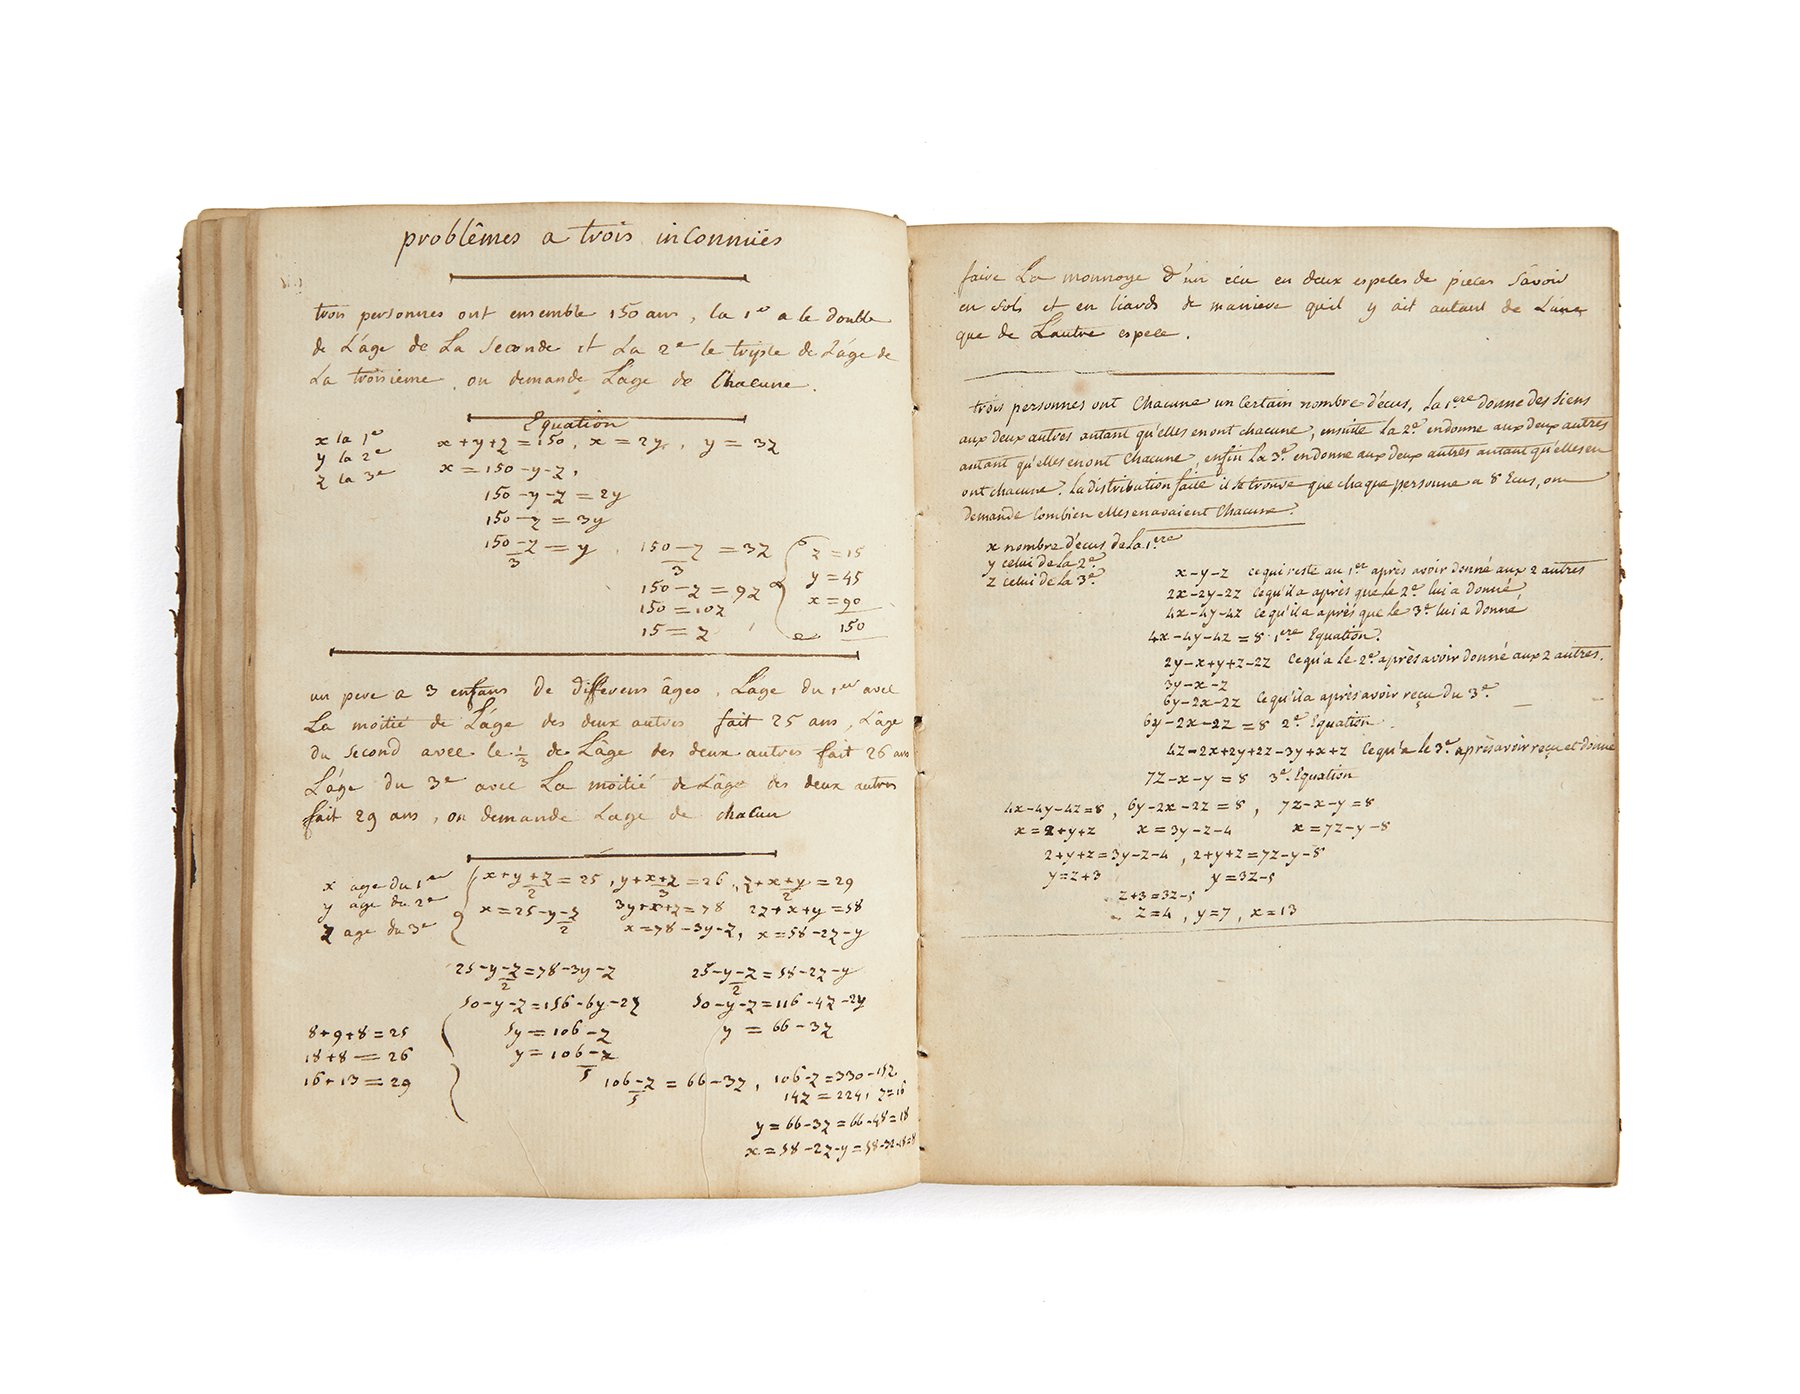 problêmes a trois inconnuës
trois personnes ont ensemble 150 ans, la 1re a le double
de L'âge de La Seconde et La 2e le triple de L'âge de
La troisieme, on demande L'age de Chacune.
Equation
x la 1re
y la 2e
z la 3e
x+y+z=150, x=2y, y=3z
x=150-y-z,
150-y-z=2y
150-z=3y
150-z/3=y, 150-z/3=3z
150-z=9z
150=10z
15=z
z=15
y=45
x=90
150
un pere a 3 enfans de differens âges, L'âge du 1er avec
La moitié de L'âge des deux autres fait 25 ans, L'âge
du Second avec le 1/3 de L'âge des deux autres fait 26 ans
L'âge du 3e avec La moitié de L'âge des deux autres
fait 29 ans, on demande L'age de chacun
x age du 1er
y age du 2e
z age du 3e
x+y+z/2=25, y+x+z/3=26, z+x+y/2=29
x=25-y-z/2 3y+x+z=78 2z+x+y=58
x=78-3y-z, x=58-2z-y
25-y-z/2=78-3y-z 25-y-z/2=58-2z-y
50-y-z=156-6y-2z 50-y-z=116-4z-2y
5y=106-z y=66-3z
y=106-z/5
106-z/5=66-3z, 106-z=330-15z
14z=224, z=16
y=66-3z=66-48=18
x=58-2z-y=58-32-18=8
8+9+8=25
18+8=26
16+13=29
faire La monnoye d'un écu en deux especes de pieces Savoir
en Sols et en liards de maniere qu'il y ait autant de L'une
que de L'autre espece.
trois personnes ont Chacune un Certain nombre d'écus, La 1ere donne des Siens
aux deux autres autant qu'elles en ont chacune, ensuite La 2e en donne aux deux autres
autant qu'elles en ont Chacune, enfin La 3e en donne aux deux autres autant qu'elles en
ont chacune. La distribution faite il se trouve que chaque personne a 8 Ecus, on
demande Combien elles en avaient Chacune.
x nombre d'écus de La 1ere
y celui de La 2e
z celui de La 3e
x-y-z ce qui reste au 1er après avoir donné aux 2 autres
2x-2y-2z ce qu'il a après que le 2e lui a donné,
4x-4y-4z ce qu'il a après que le 3e lui a donné
4x-4y-4z=8 1ere Equation.
2y-x+y+z-2z ce qu'a le 2e après avoir donné aux 2 autres.
3y-x-z
6y-2x-2z ce qu'il a après avoir reçu du 3e
6y-2x-2z=8 2e Equation
4z-2x+2y+2z-3y+x+z ce qu'a le 3e après avoir reçu et donné
7z-x-y=8 3e Equation
4x-4y-4z=8, 6y-2x-2z=8, 7z-x-y=8
x=2+y+z x=3y-z-4 x=7z-y-8
2+y+z=3y-z-4, 2+y+z=7z-y-8
y=z+3 y=3z-5
z+3=3z-5
z=4, y=7, x=13